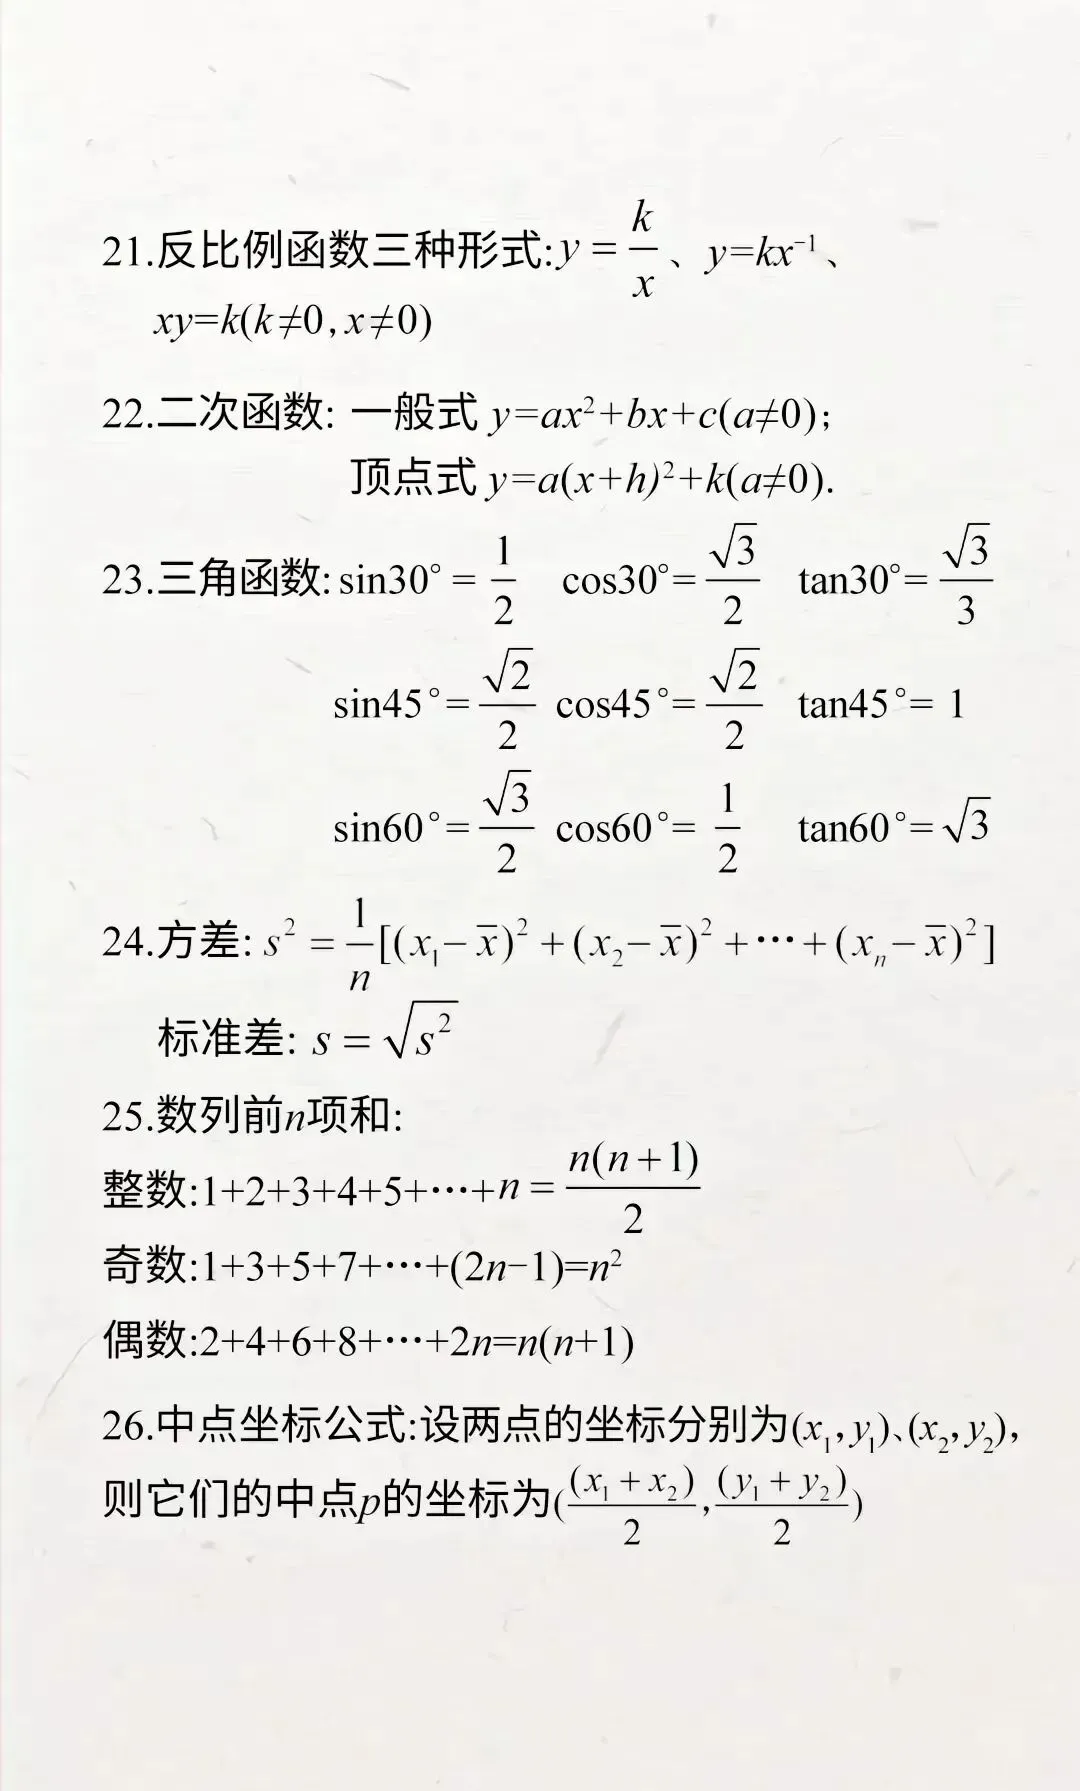 21.反比例函数三种形式:y = k/x 、y=kx⁻¹、
xy=k(k≠0,x≠0)
22.二次函数: 一般式 y=ax²+bx+c(a≠0);
顶点式 y=a(x+h)²+k(a≠0).
23.三角函数: sin30° = 1/2 cos30°= √3/2 tan30°= √3/3
sin45°= √2/2 cos45°= √2/2 tan45°= 1
sin60°= √3/2 cos60°= 1/2 tan60°= √3
24.方差: s² = 1/n[(x₁−x̅)²+(x₂−x̅)²+⋯+(xₙ−x̅)²]
标准差: s = √s²
25.数列前n项和:
整数:1+2+3+4+5+⋯+n = n(n+1)/2
奇数:1+3+5+7+⋯+(2n−1)=n²
偶数:2+4+6+8+⋯+2n=n(n+1)
26.中点坐标公式:设两点的坐标分别为(x₁,y₁)、(x₂,y₂),
则它们的中点p的坐标为((x₁+x₂)/2,(y₁+y₂)/2)